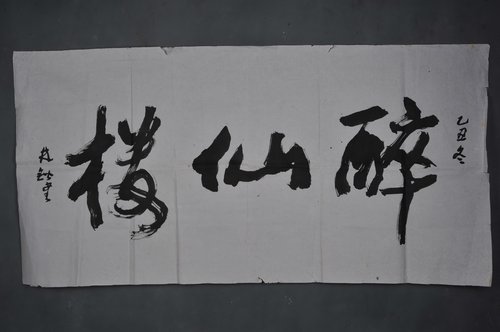 乙丑冬
醉仙楼